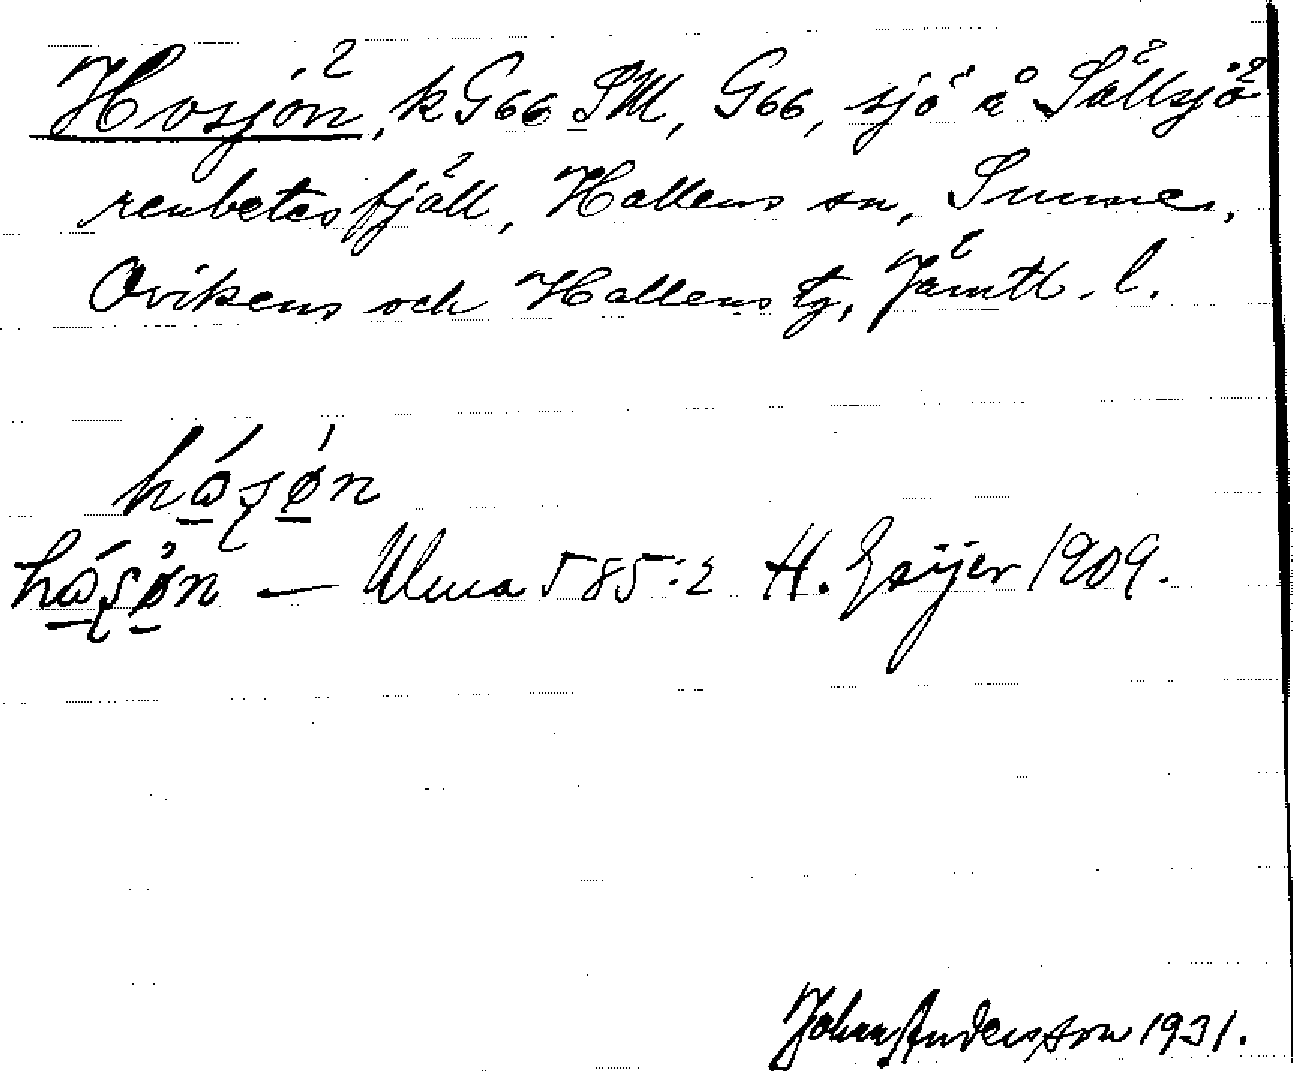 Hosjön, k G66 SM, G66, sjö å Sållsjö
renbetesfjäll, Hallens sn, Sunne,
Ovikens och Hallens tg, Jämtl. l.
Ulma 585:2 H. Geijer 1909.
Johan Andersson 1931.